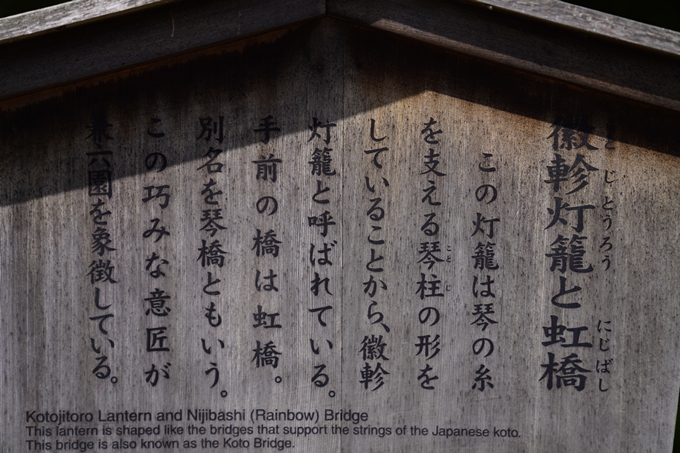 徽軫灯籠と虹橋
ことじとうろう
にじばし
この灯籠は琴の糸
を支える琴柱の形を
ことじ
していることから、徽軫
灯籠と呼ばれている。
手前の橋は虹橋。
別名を琴橋ともいう。
この巧みな意匠が
兼六園を象徴している。
Kotojitoro Lantern and Nijibashi (Rainbow) Bridge
This lantern is shaped like the bridges that support the strings of the Japanese koto.
This bridge is also known as the Koto Bridge.